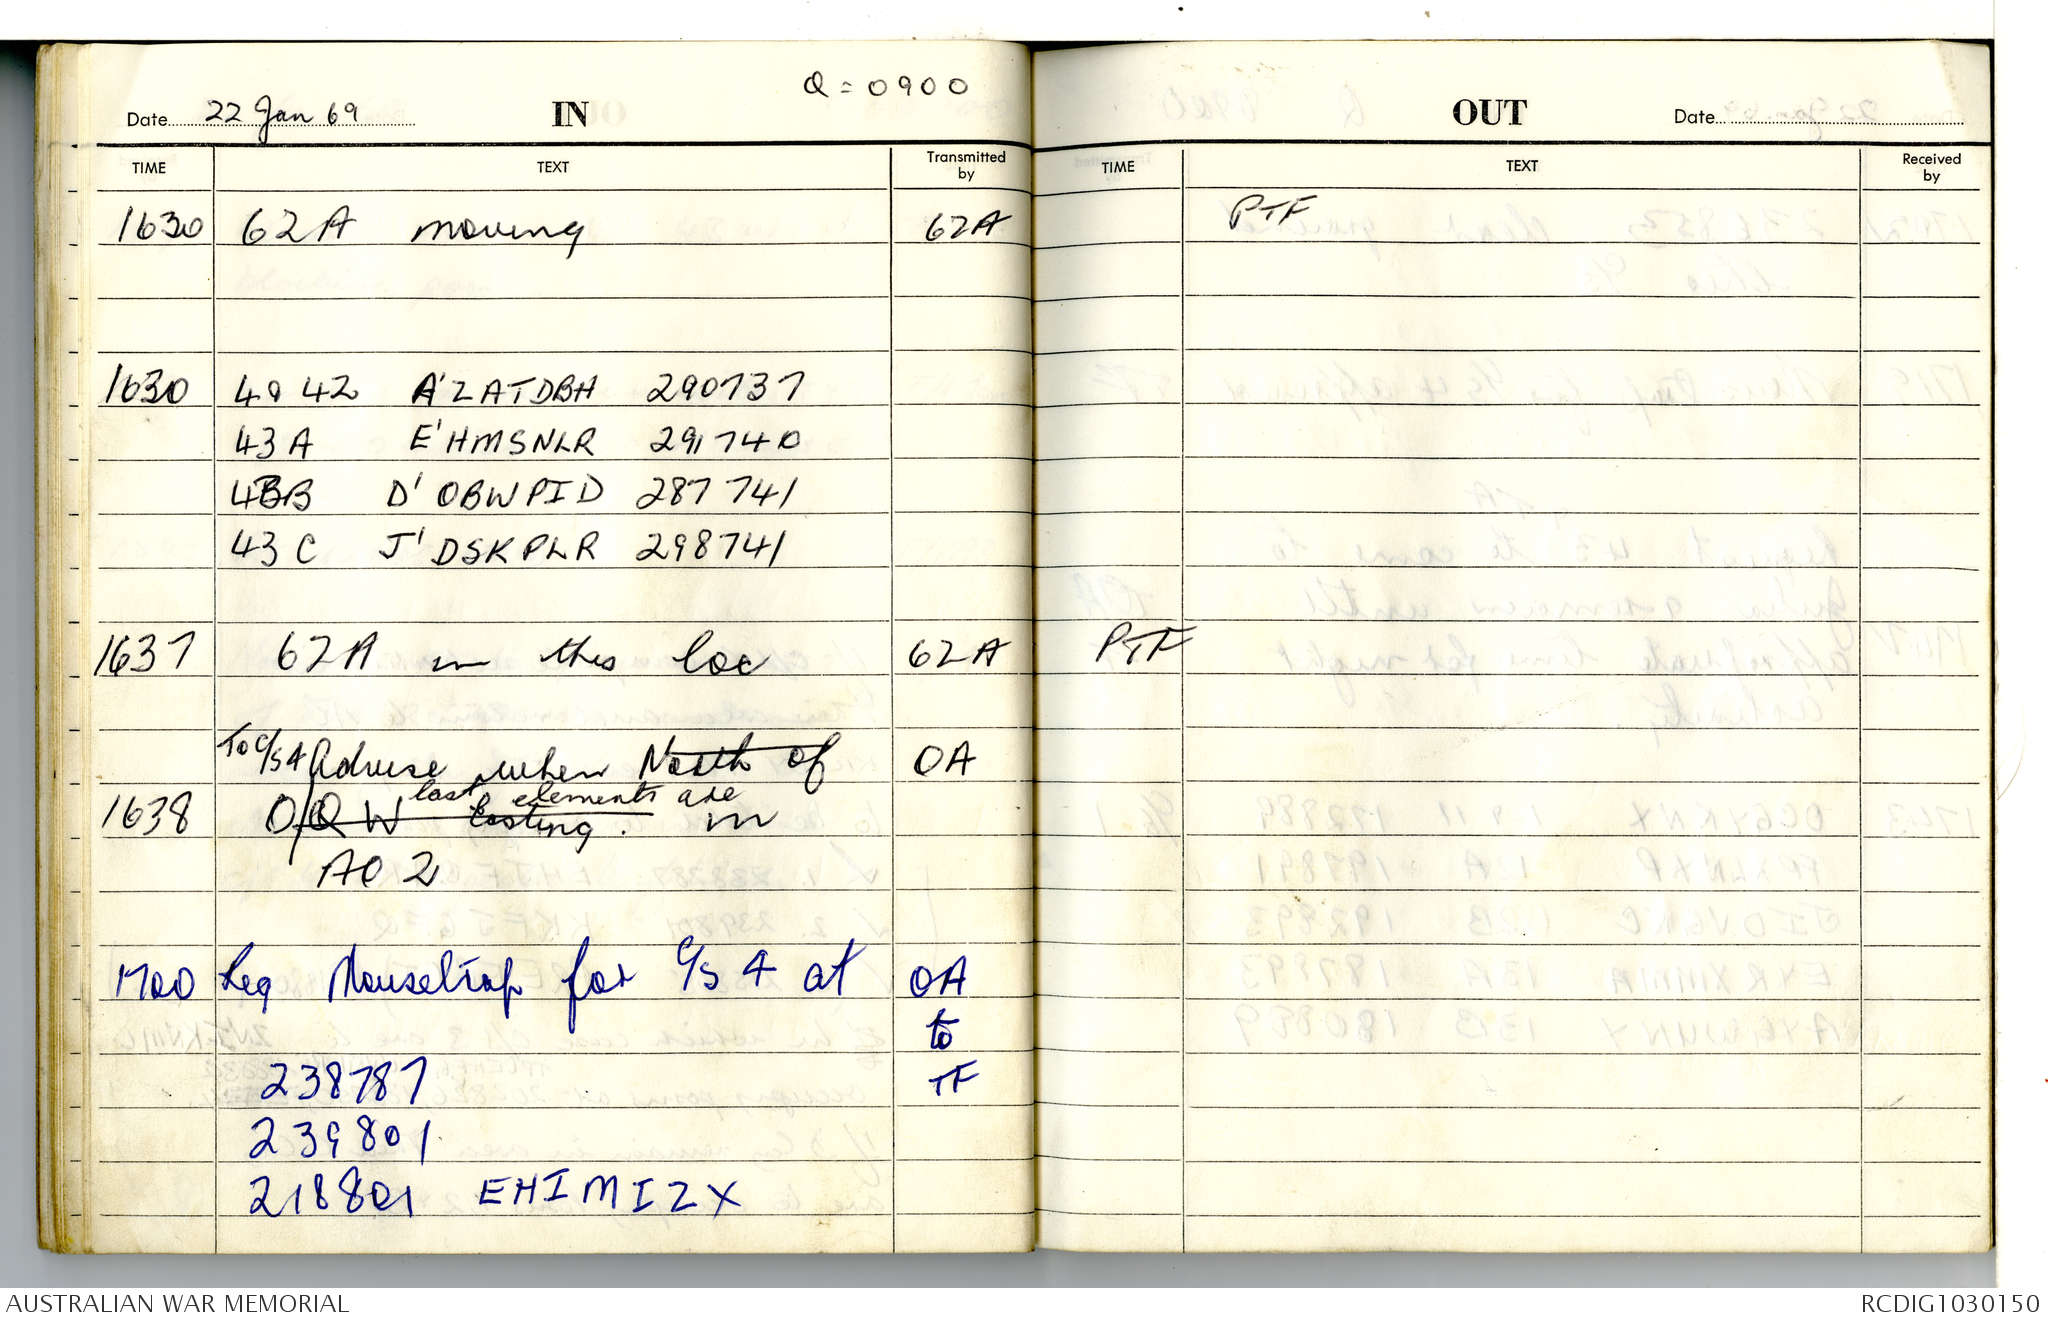 Q = 0900
Date 22 Jan 69 IN
TIME TEXT Transmitted by
1630 62A moving 62A
1630 49 42 A'ZATDBH 290737
43A E'HMSNLR 291740
43B D'OBWPID 287741
43C J'DSKPLR 298741
1637 62A in this loc 62A
To C/S 4 Advise when North of 0A
last elements are
1638 QW Easting. in
AO 2
1700 Req Mousetrap for C/S 4 at 0A
to
238787 TF
239801
218801 EHIMIZX
OUT Date
TIME TEXT Received by
PTF
PTF
AUSTRALIAN WAR MEMORIAL RCDIG1030150